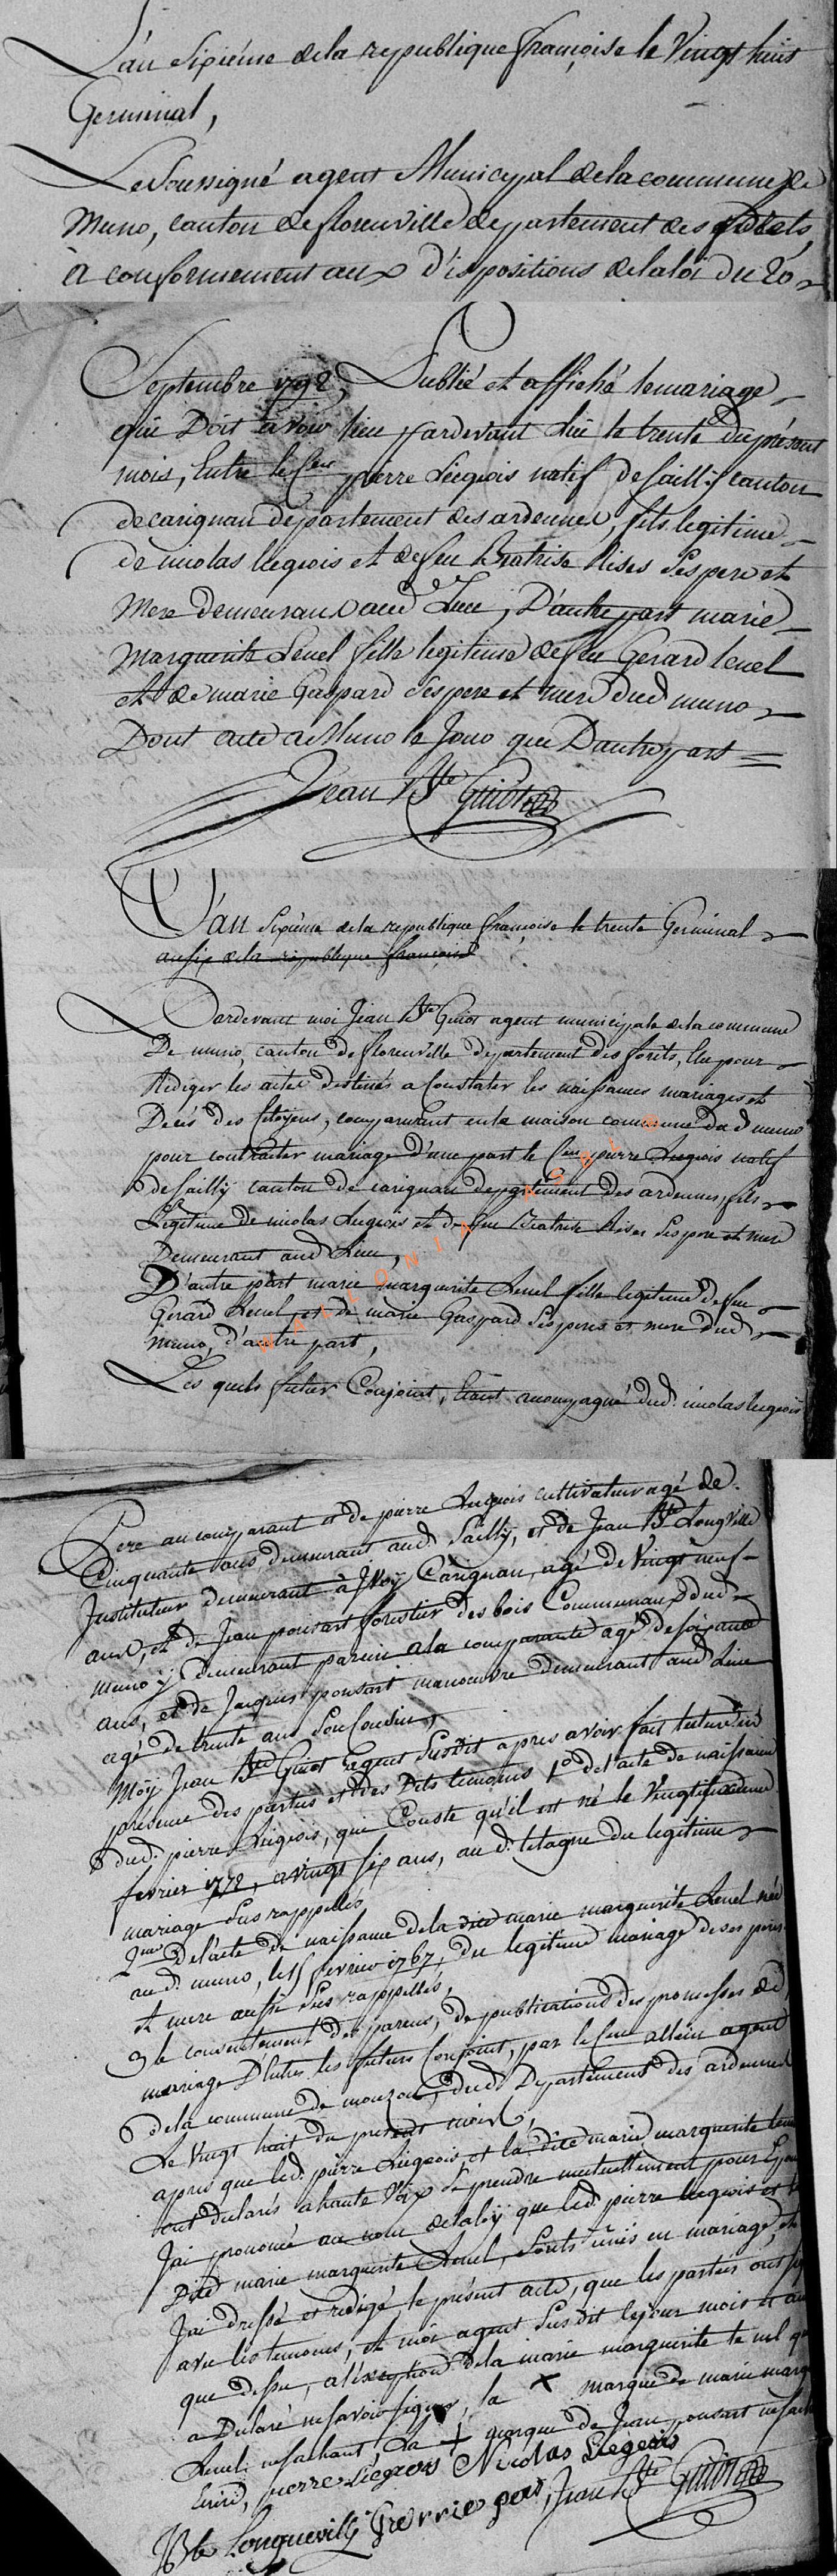 L'an sixiéme de la republique françoise le Vingt huit
Germinal,
Le soussigné agent Municypal de la commune de
Muno, canton de florenville departement des forêts,
a conformement aux dispositions de la loi du 20
Septembre 1792, Publié et affiché le mariage
qui Doit avoir lieu pardevant lui le trente du présent
mois, Entre le Cen pierre Liegeois natif de sailly canton
de carignan département des ardennes, fils legitime
de nicolas liegeois et de feu Beatrise Rises ses pere et
Mere demeurant aud Lieu, D'autre part marie
Marguerite Lenel fille legitime de feu Gerard lenel
et de marie Gaspard ses pere et mere dud muno
Dont acte a Muno le Jour que D'autre part
Jean Bte Guiot
L'an sixieme de la republique françoise le trente Germinal
an six de la republique françoise
Pardevant moi Jean Bte Guiot agent municipale de la commune
De muno, canton de florenville departement des forêts, Elu pour
Rediger les actes destinés a Constater les naissances mariages et
Decés des Citoyens, comparurent en la maison commune dud muno
pour contracter mariage d'une part le Cen pierre Liegeois natif
de sailly canton de carignan departement des ardennes, fils
Legitime de nicolas Liegeois et de feu Beatrise Rises ses pere et mere
Demeurant aud Lieu,
D'autre part marie marguerite Lenel fille legitime de feu
Gerard Lenel et de marie Gaspard ses peres et mere dud
muno, d'autre part,
Les quels futur Conjoint, étant accompagné dud. nicolas liegeois
Pere au comparant et de pierre Liegeois cultivateur agé de
Cinquante ans demeurant aud Sailly, et de Jean Bte LongVille
Instituteur demeurant à Ivoÿ Carignan, agé de Vingt neuf
ans, et de Jean ponsart forestier des bois Communaux dud
muno y demeurant parein a la comparante agé de soixante
ans, et de Jacques ponsart manoeuvre demeurant aud Lieu
agé de trente ans son Cousin,
Moÿ Jean Bte Guiot agent susdit apres avoir fait lecture en
présence des parties et des Dits temoins 1o de l'acte de naissance
dud. pierre Liegeois, qui Conste qu'il est né le Vingt
fevrier 1772, a vingt six ans, au d. du legitime
mariage sus rappellés
De l'acte de naissance de la dite marie marguerite Lenel née
au d. muno, le 15 fevrier 1767, du legitime mariage de ses peres
et mere aussi sus rappellés,
3 le consentement des parens, de publications des promesses de
mariage D'Entre les futurs Conjoint, par le Cen allein agent
de la commune de mouzon, dud Departement des ardennes
Le Vingt huit du present mois,
apres que led. pierre Liegeois et la dite marie marguerite lenel
ont declarés a haute Voix se prendre mutuellement pour Epoux
J'ai prononcé au nom de la loÿ que led. pierre liegeois et la
Dite marie marguerite Lenel, sonts unis en mariage, et
J'ai dressé et redigé le présent acte, que les parties ont
avec les temoins, et moi agent susdit le jour mois et an
que dessus, a l'exeption de la marie marguerite lenel qui
a Declaré ne savoir signer, la X marque de marie marg
Lenel. ne sachant La + marque de Jean ponsart ne sach
Ecrire, pierre Liegeois Nicolas Liegeois
JBte Longueville Jean Bte Guiot
WALLONIA